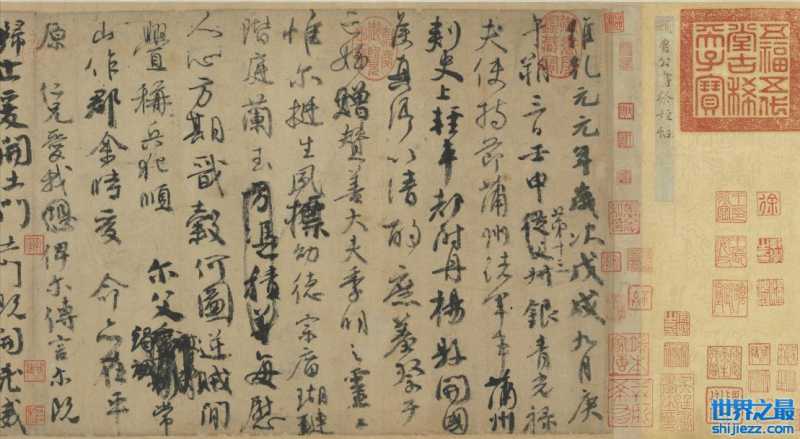 五福五代
堂古稀
天子寶
維乾元元年歲次戊戌九月庚
午朔三日壬申第十三從父叔銀青光祿
夫使持節蒲州諸軍事蒲州
刺史上輕車都尉丹楊縣開國
侯真卿以清酌庶羞祭于
亡姪贈贊善大夫季明之靈曰
惟爾挺生夙標幼德宗廟瑚璉
階庭蘭玉方憑積善每慰
人心方期戩穀何圖逆賊閒
釁稱兵犯順爾父竭誠常
山作郡余時受命亦在平
原仁兄愛我俾爾傳言爾既
歸止爰開土門土門既開凶威
世界之最
shijiezz.com